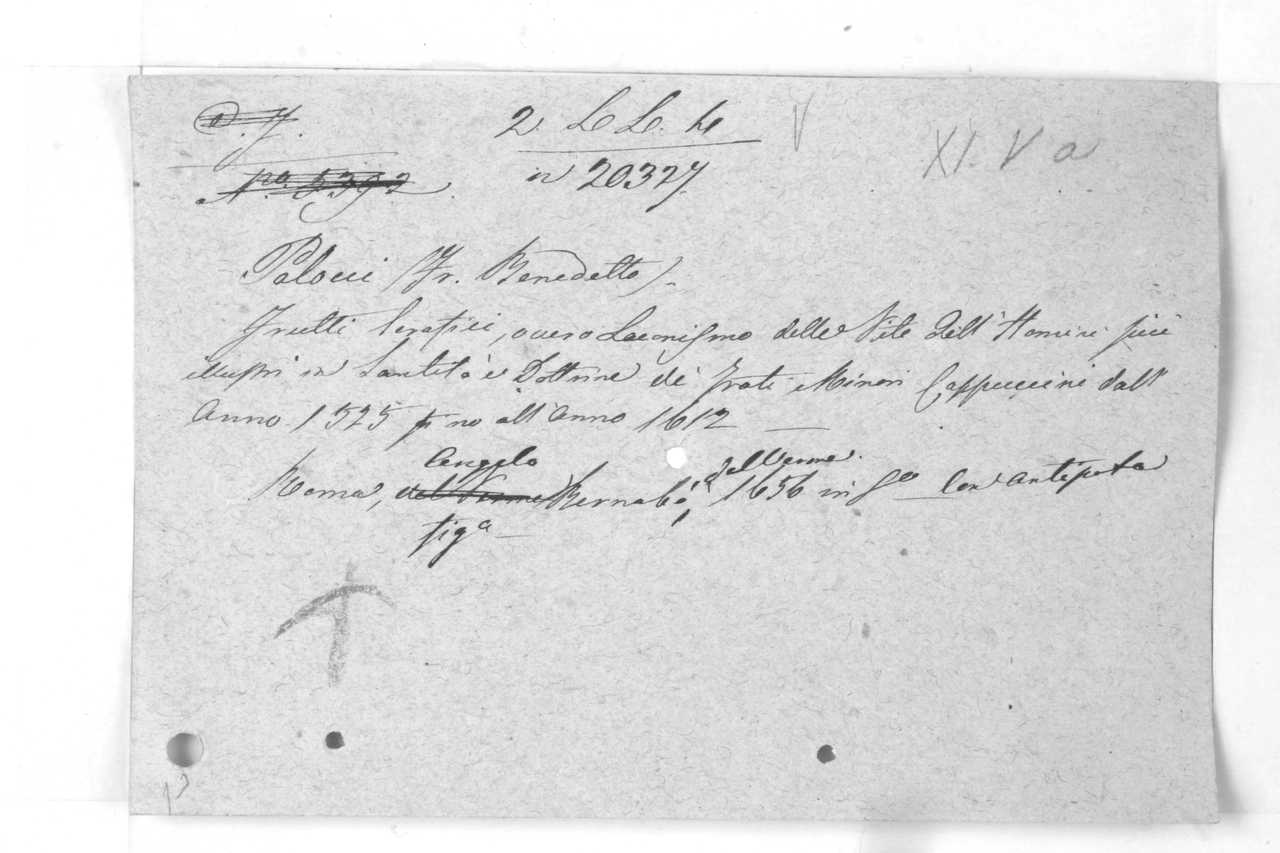 D. J.
2 L L. h
V
XI. V a
No. 5392
in 20327
Palocci (Fr. Benedetto).
Frutti Serafici, overo Laconismo delle Vite dell' Homini piu
illustri in Santità e Dottrina dè Frati Minori Cappuccini dall'
Anno 1525 fino all' Anno 1612 —
Angelo
del Verme
Roma, del Verme Bernabò, 1656 in 8º Con Antiporta
figª —